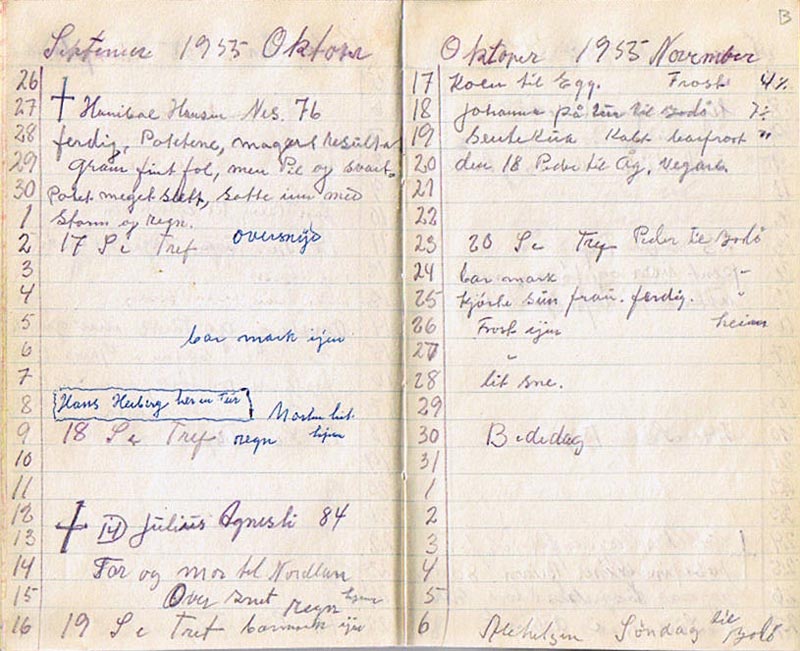 September 1955 Oktoper
26
27 † Hanibal Hansen Nes. 76
28 ferdig, Potetene, magert resulta
29 fint fol, men Pie og svart
30 Potet meget slett, satte inn med
1 Storm og regn.
2 17 S e Tref oversnijd
3
4
5 bar mark ijen
6
7
8 Hans Herberg her en Tur
9 18 S e Tref regn ijen
10
11
12 † 14 Julius Agnesli 84
13
14 Far og mor til Nordlan
15 Over snet regn
16 19 S e Tref barmark ijen
B
Oktoper 1955 November
17 til Egg. Frost 4 %
18 Johanna på tur til Bodø 7 %
19 Kalt barfrost "
20 den 18 Peder til Åg, Vegard.
21
22
23 20 S e Tref Peder til Bodø
24 bar mark "
25 kjørte frau. ferdig. "
26 Frost ijen heime
27 "
28 lit sne.
29
30 Bededag
31
1
2
3
4
5
6 Allehelgen Søndag til Bodø